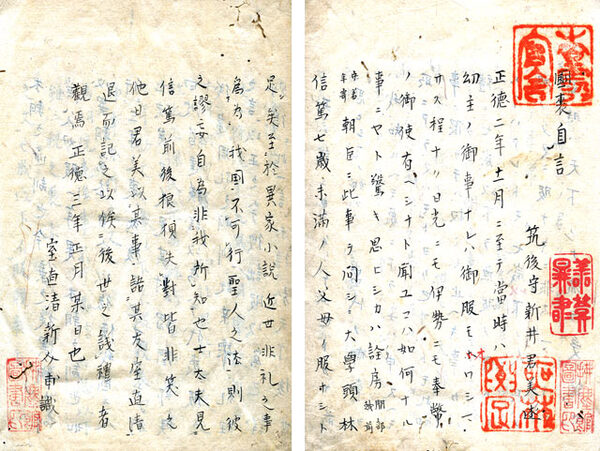 國喪自言
筑後守新井君美述
正德二年十一月ニ至テ當時ハ
幼主ノ御事ナレハ御服モ
サス程ナリ日光ニモ伊勢ニモ奉幣
ノ御使有ヘシナト聞ユコハ如何ナル
事ニヤト驚キ思ヒシカハ詮房 間部越前
朝臣ニ此事ヲ問シニ大學頭林
信篤七歳未滿ノ人父母ノ服ナシト
足矣至於異家小説近世非礼之事
為乃我國不可行聖人之法則彼
之謬妄自為非我所知也士大夫見
信篤前後狼狽失對皆非笑之
他日君美以其事詰其友室直清
退而記之以俟後世之議禮者
觀焉正德三年正月某日也
室直清新父甫識